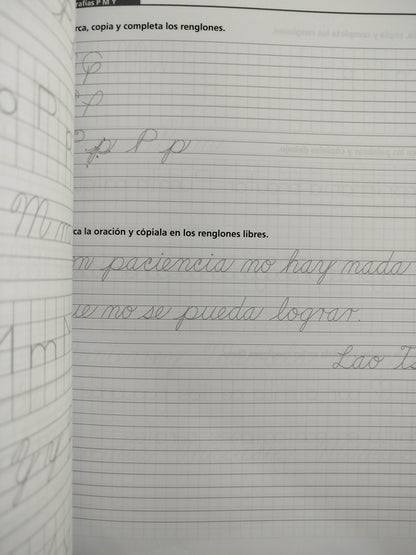 P M Y
copia y completa los renglones.
P
P
p P p
la oración y cópiala en los renglones libres.
paciencia no hay nada
no se pueda lograr.
Lao
P
p
M m
m
y y